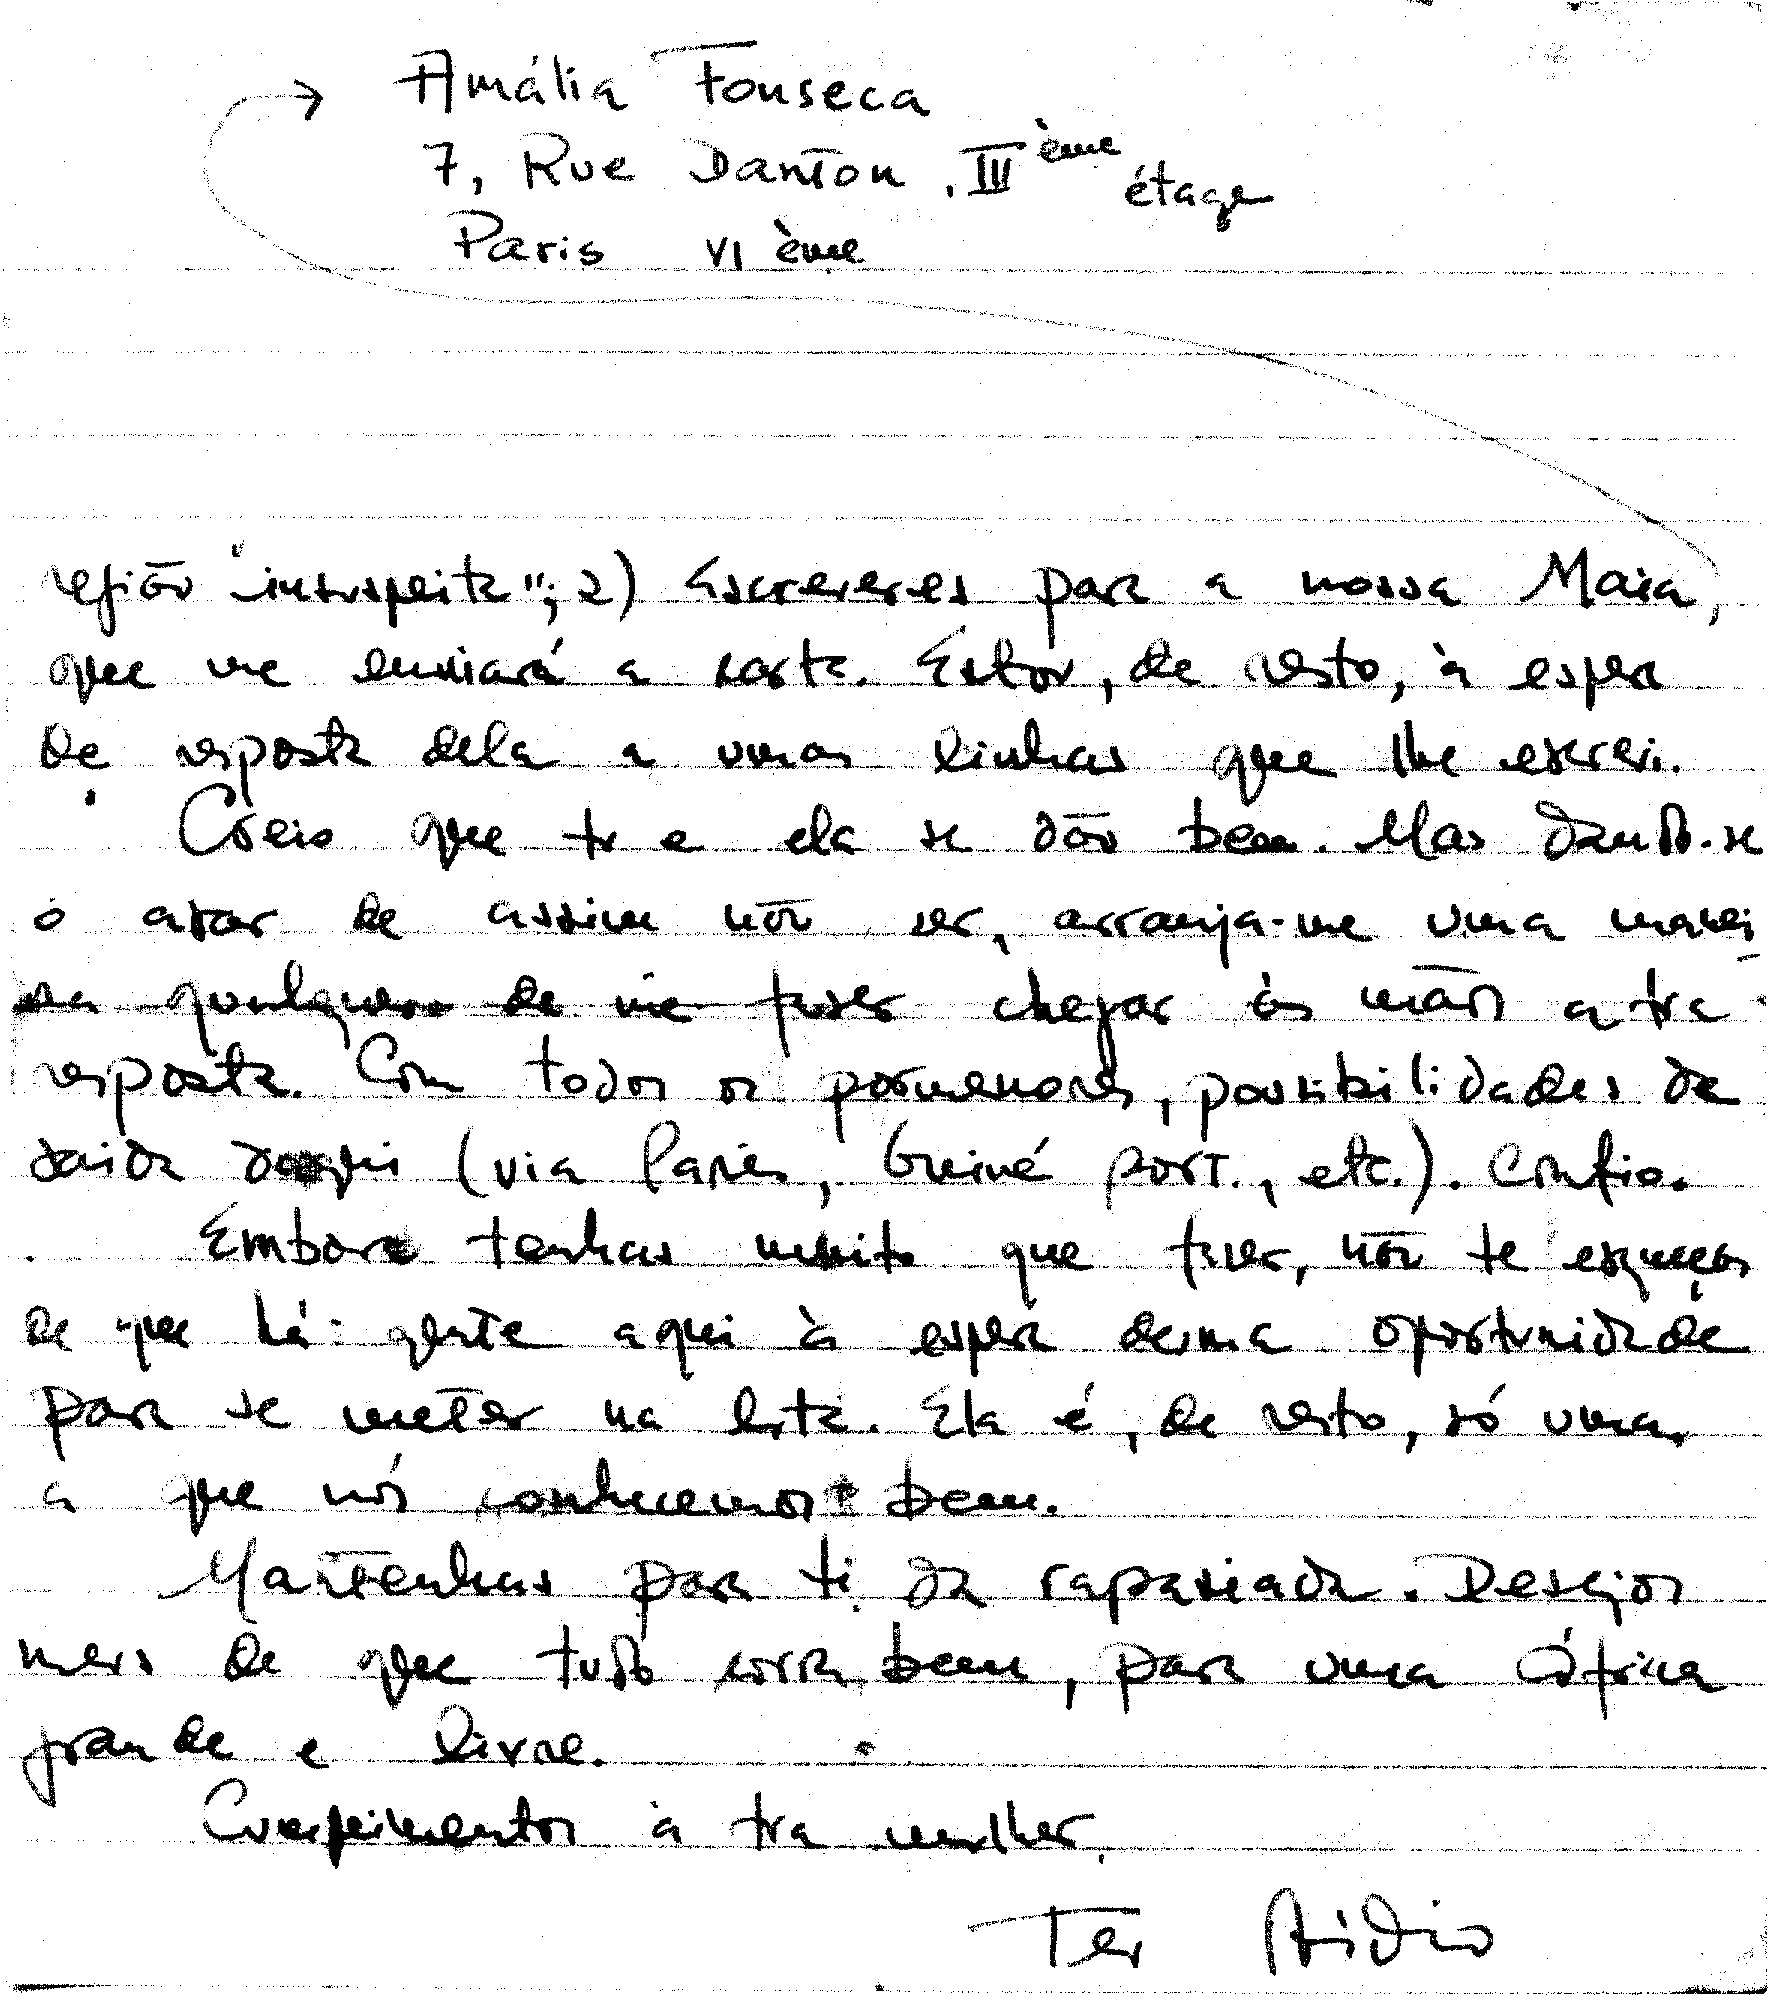 Amália Fonseca
7, Rue Danton, III ème étage
Paris VI ème
região "insuspeita"; 2) Escreveres para a nossa Maria,
que me enviará a carta. Estou, de resto, à espera
de resposta dela a umas linhas que lhe escrevi.
Creio que tu e ela se dão bem. Mas dando-se
o azar de assim não ser, arranja-me uma manei
ra qualquer de me fazer chegar às mãos a tua
resposta. Com todos os pormenores, possibilidades de
saída daqui (via Paris, Guiné port., etc.). Confio.
Embora tenhas muito que fazer, não te esqueças
de que há gente aqui à espera de uma oportunidade
para se meter na luta. Ela é, de resto, só uma,
a que nós conhecemos bem.
Mantenhas para ti da rapaziada. Desejos
meus de que tudo corra bem, para uma África
grande e livre.
Cumprimentos à tua mulher.
Teu